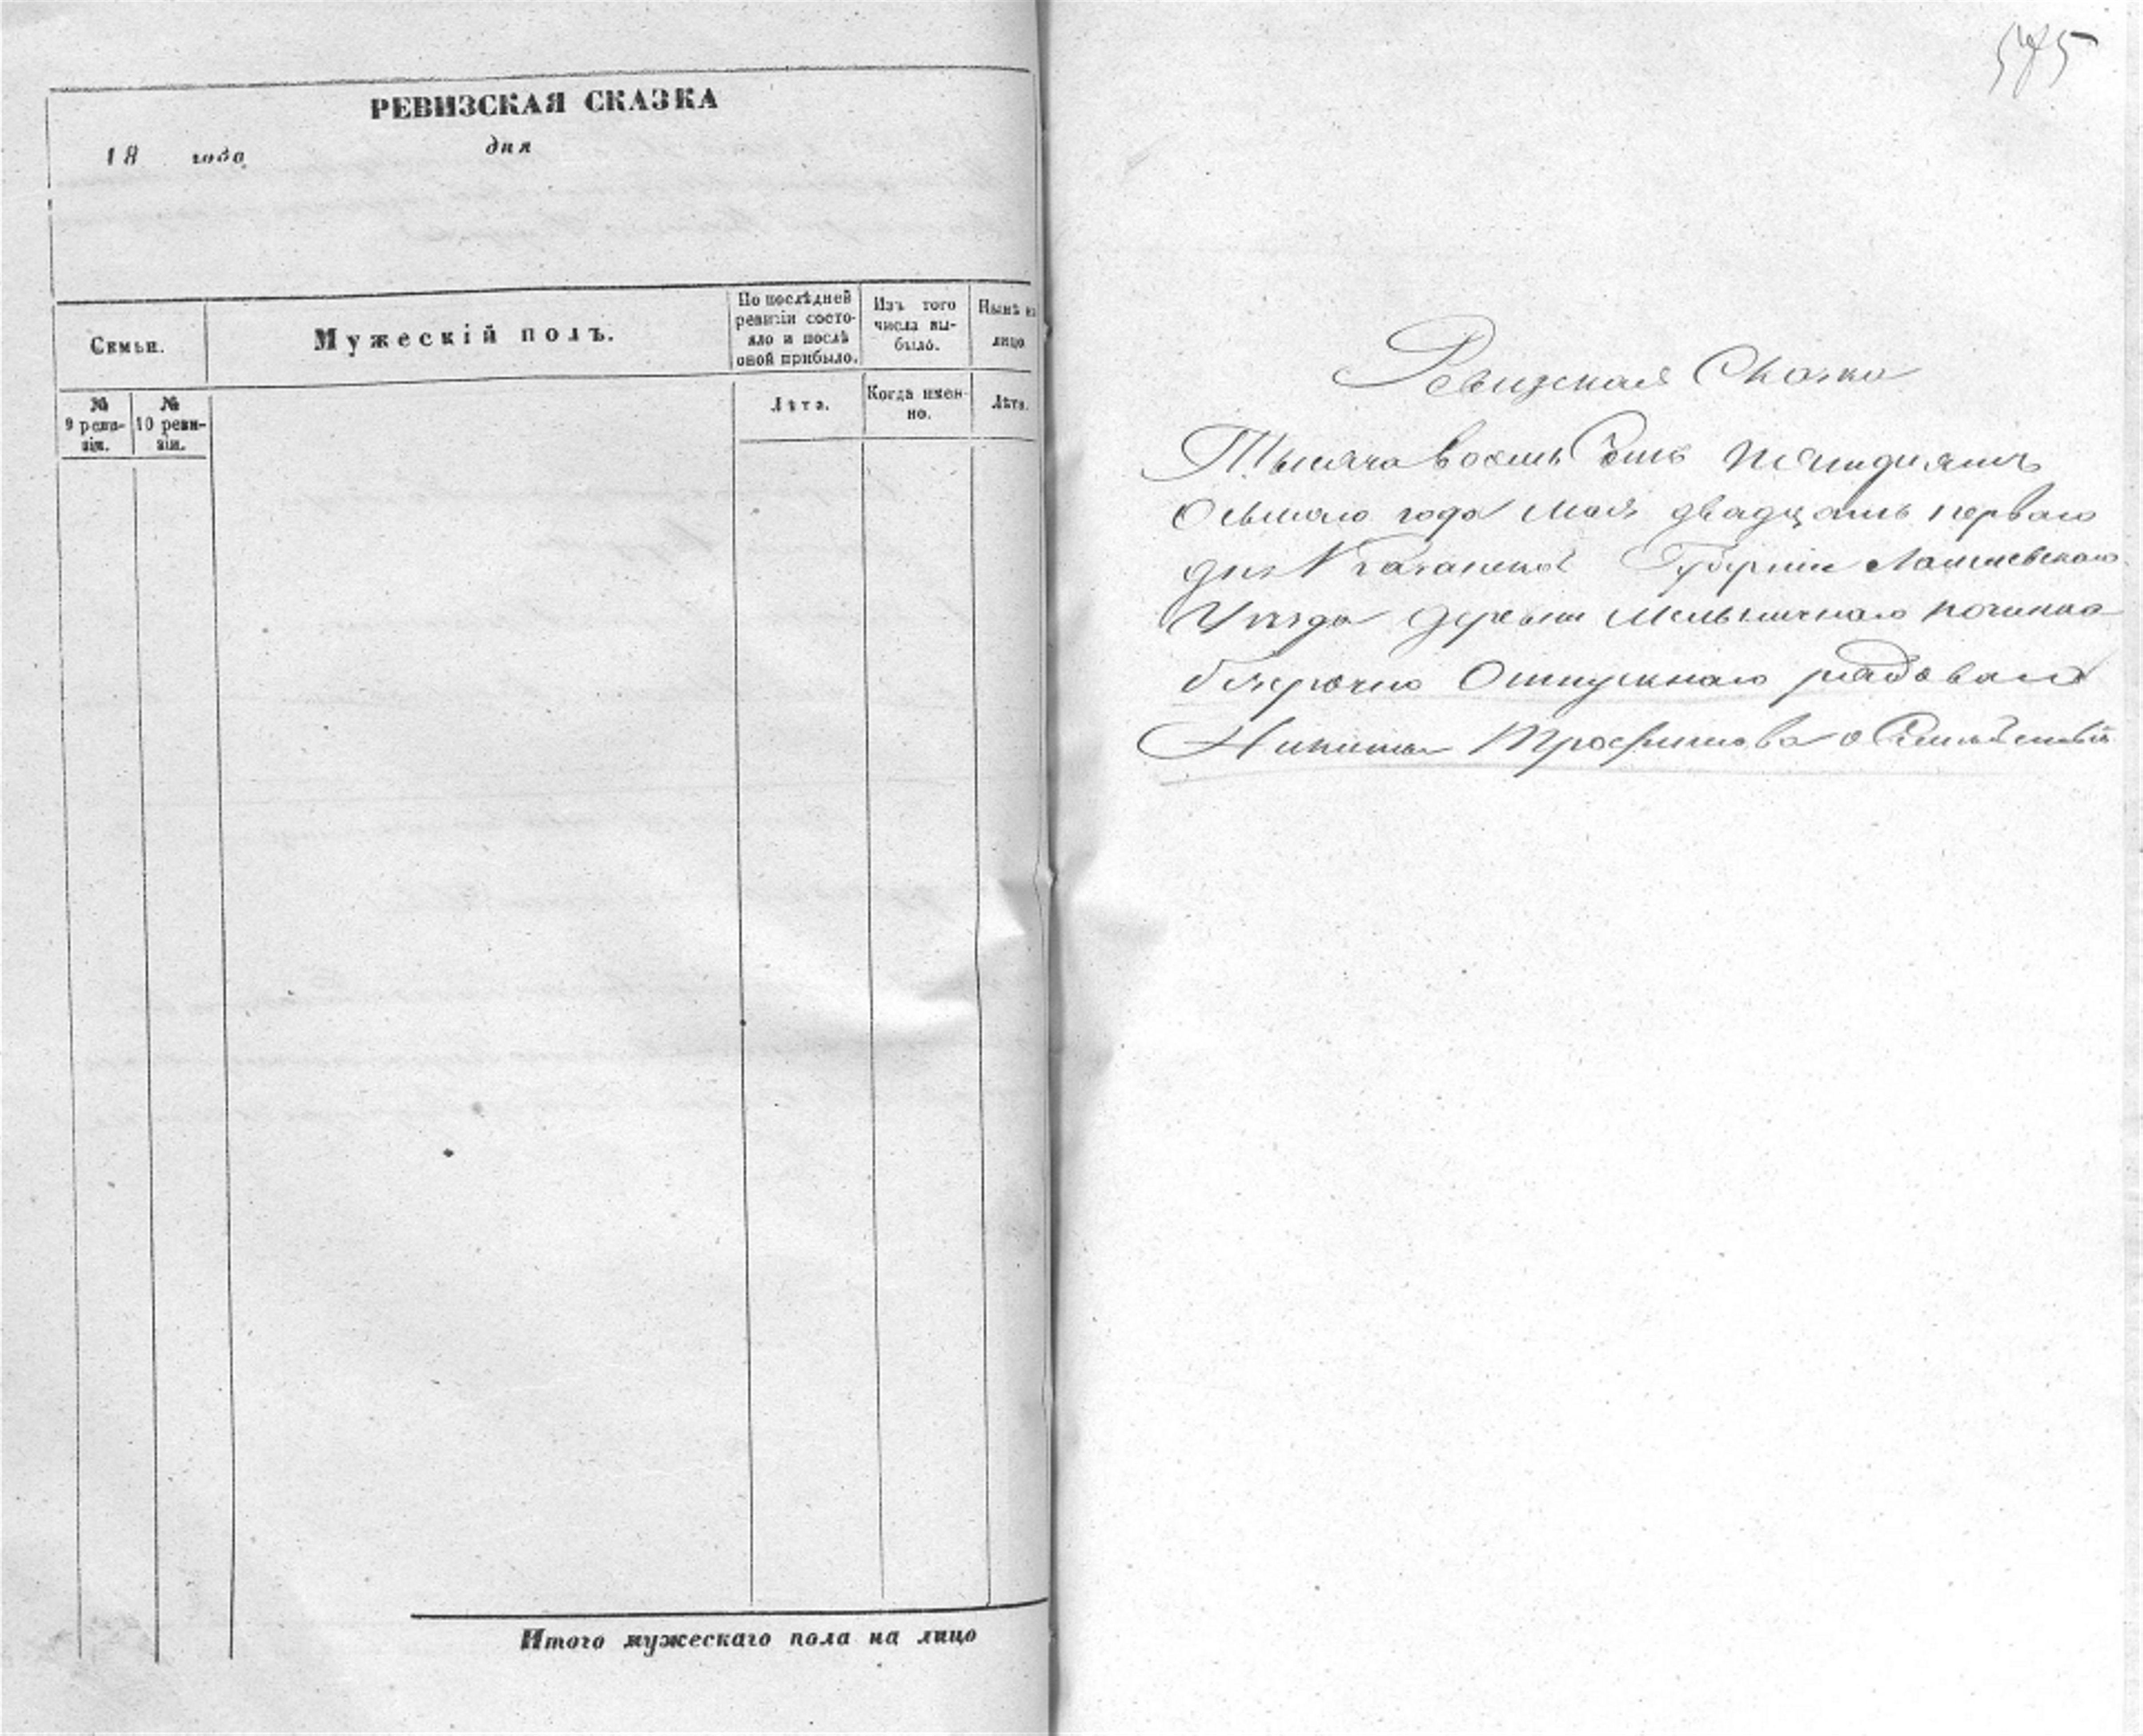 РЕВИЗСКАЯ СКАЗКА
18 года дня
Семьи.
Мужескій полъ.
По послѣдней
ревизіи состо-
яло и послѣ
оной прибыло.
Изъ того
числа вы-
было.
Нынѣ на
лицо
№
9 реви-
зіи.
№
10 реви-
зіи.
Лѣта.
Когда имен-
но.
Лѣта.
Итого мужескаго пола на лицо
575
Ревизская Сказка
Тысяча восемь сотъ пятидесятъ
Осьмаго года мая двадцать перваго
дня Казанской Губерніи Лаишевскаго
Уѣзда деревни Мельничнаго починка
безсрочно Отпускнаго рядоваго
Никиты Трофимова о Семействѣ